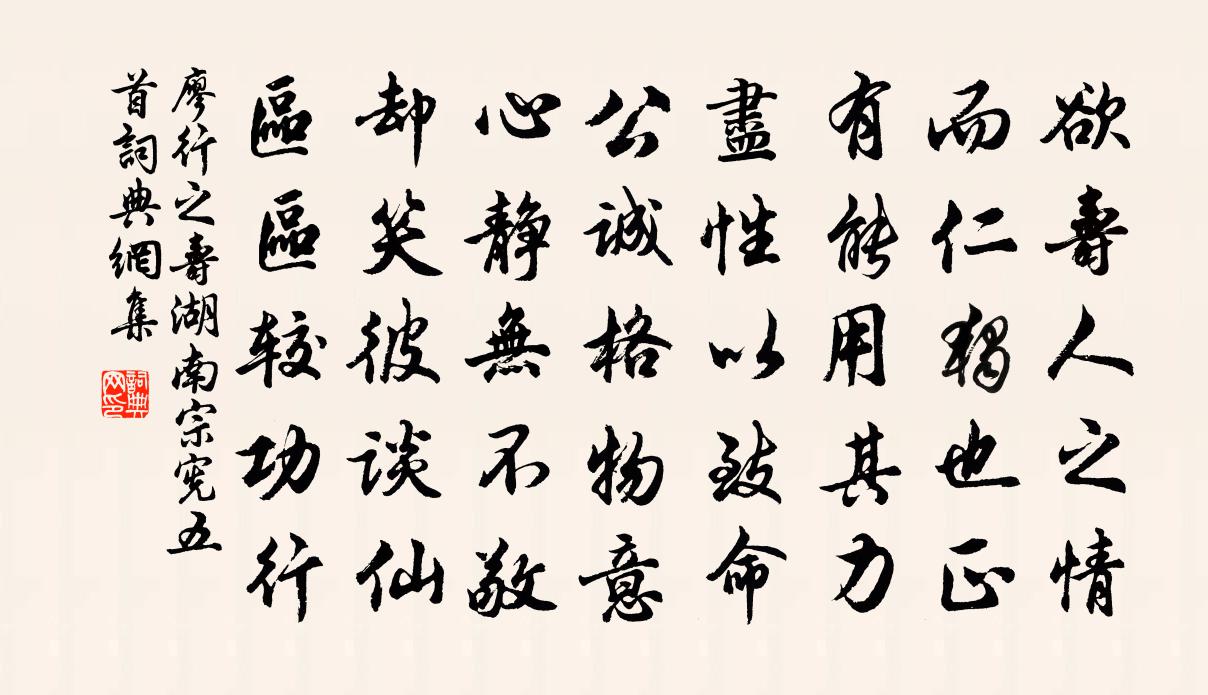 欲壽人之情
而仁獨也正
有能用其力
盡性以致命
公誠格物意
心靜無不敬
却笑彼談仙
區區較功行
廖行之壽湖南宗憲五
首詞典網集
詞典
网印